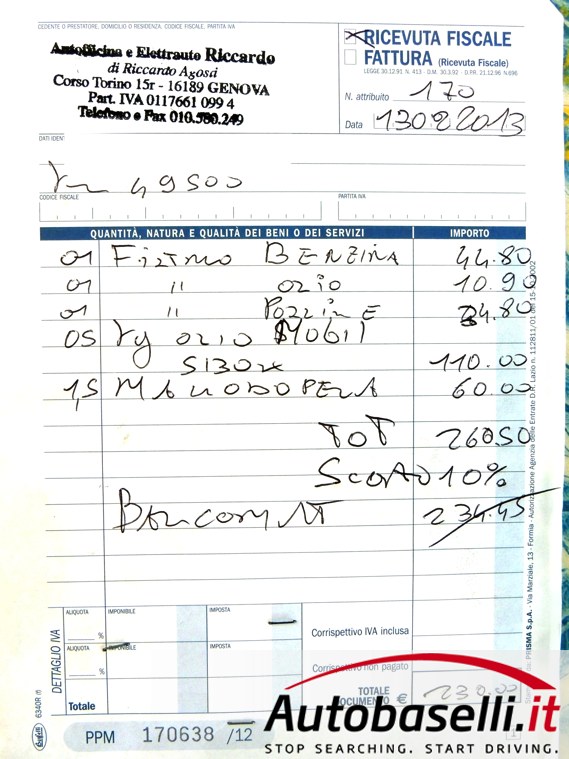 CEDENTE O PRESTATORE, DOMICILIO O RESIDENZA, CODICE FISCALE, PARTITA IVA
Autofficina e Elettrauto Riccardo
di Riccardo Agosti
Corso Torino 15r - 16189 GENOVA
Part. IVA 0117661 099 4
Telefono e Fax 010.580.249
RICEVUTA FISCALE
FATTURA (Ricevuta Fiscale)
LEGGE 30.12.91 N. 413 · D.M. 30.3.92 · D.P.R. 21.12.96 N.696
N. attribuito 170
Data 13 08 2013
DATI IDENT
Km 49500
CODICE FISCALE
PARTITA IVA
QUANTITÀ, NATURA E QUALITÀ DEI BENI O DEI SERVIZI IMPORTO
01 FILTRO BENZINA 44.80
01 " OLIO 10.90
01 " POLLINE 34.80
05 Kg OLIO MOBIL
5W30x 110.00
1,5 MANODOPERA 60.00
TOT 260.50
SCONTO 10%
BANCOMAT 234.45
DETTAGLIO IVA
ALIQUOTA IMPONIBILE IMPOSTA
%
Corrispettivo IVA inclusa
ALIQUOTA IMPONIBILE IMPOSTA
%
Corrispettivo non pagato
Totale
TOTALE DOCUMENTO € 230.00
PPM 170638 /12
6340R
PRISMA S.p.A. - Via Marziale, 13 - Formia - Autorizzazione Agenzia delle Entrate D.R. Lazio n. 112811/01 del 15
Autobaselli.it
STOP SEARCHING. START DRIVING.